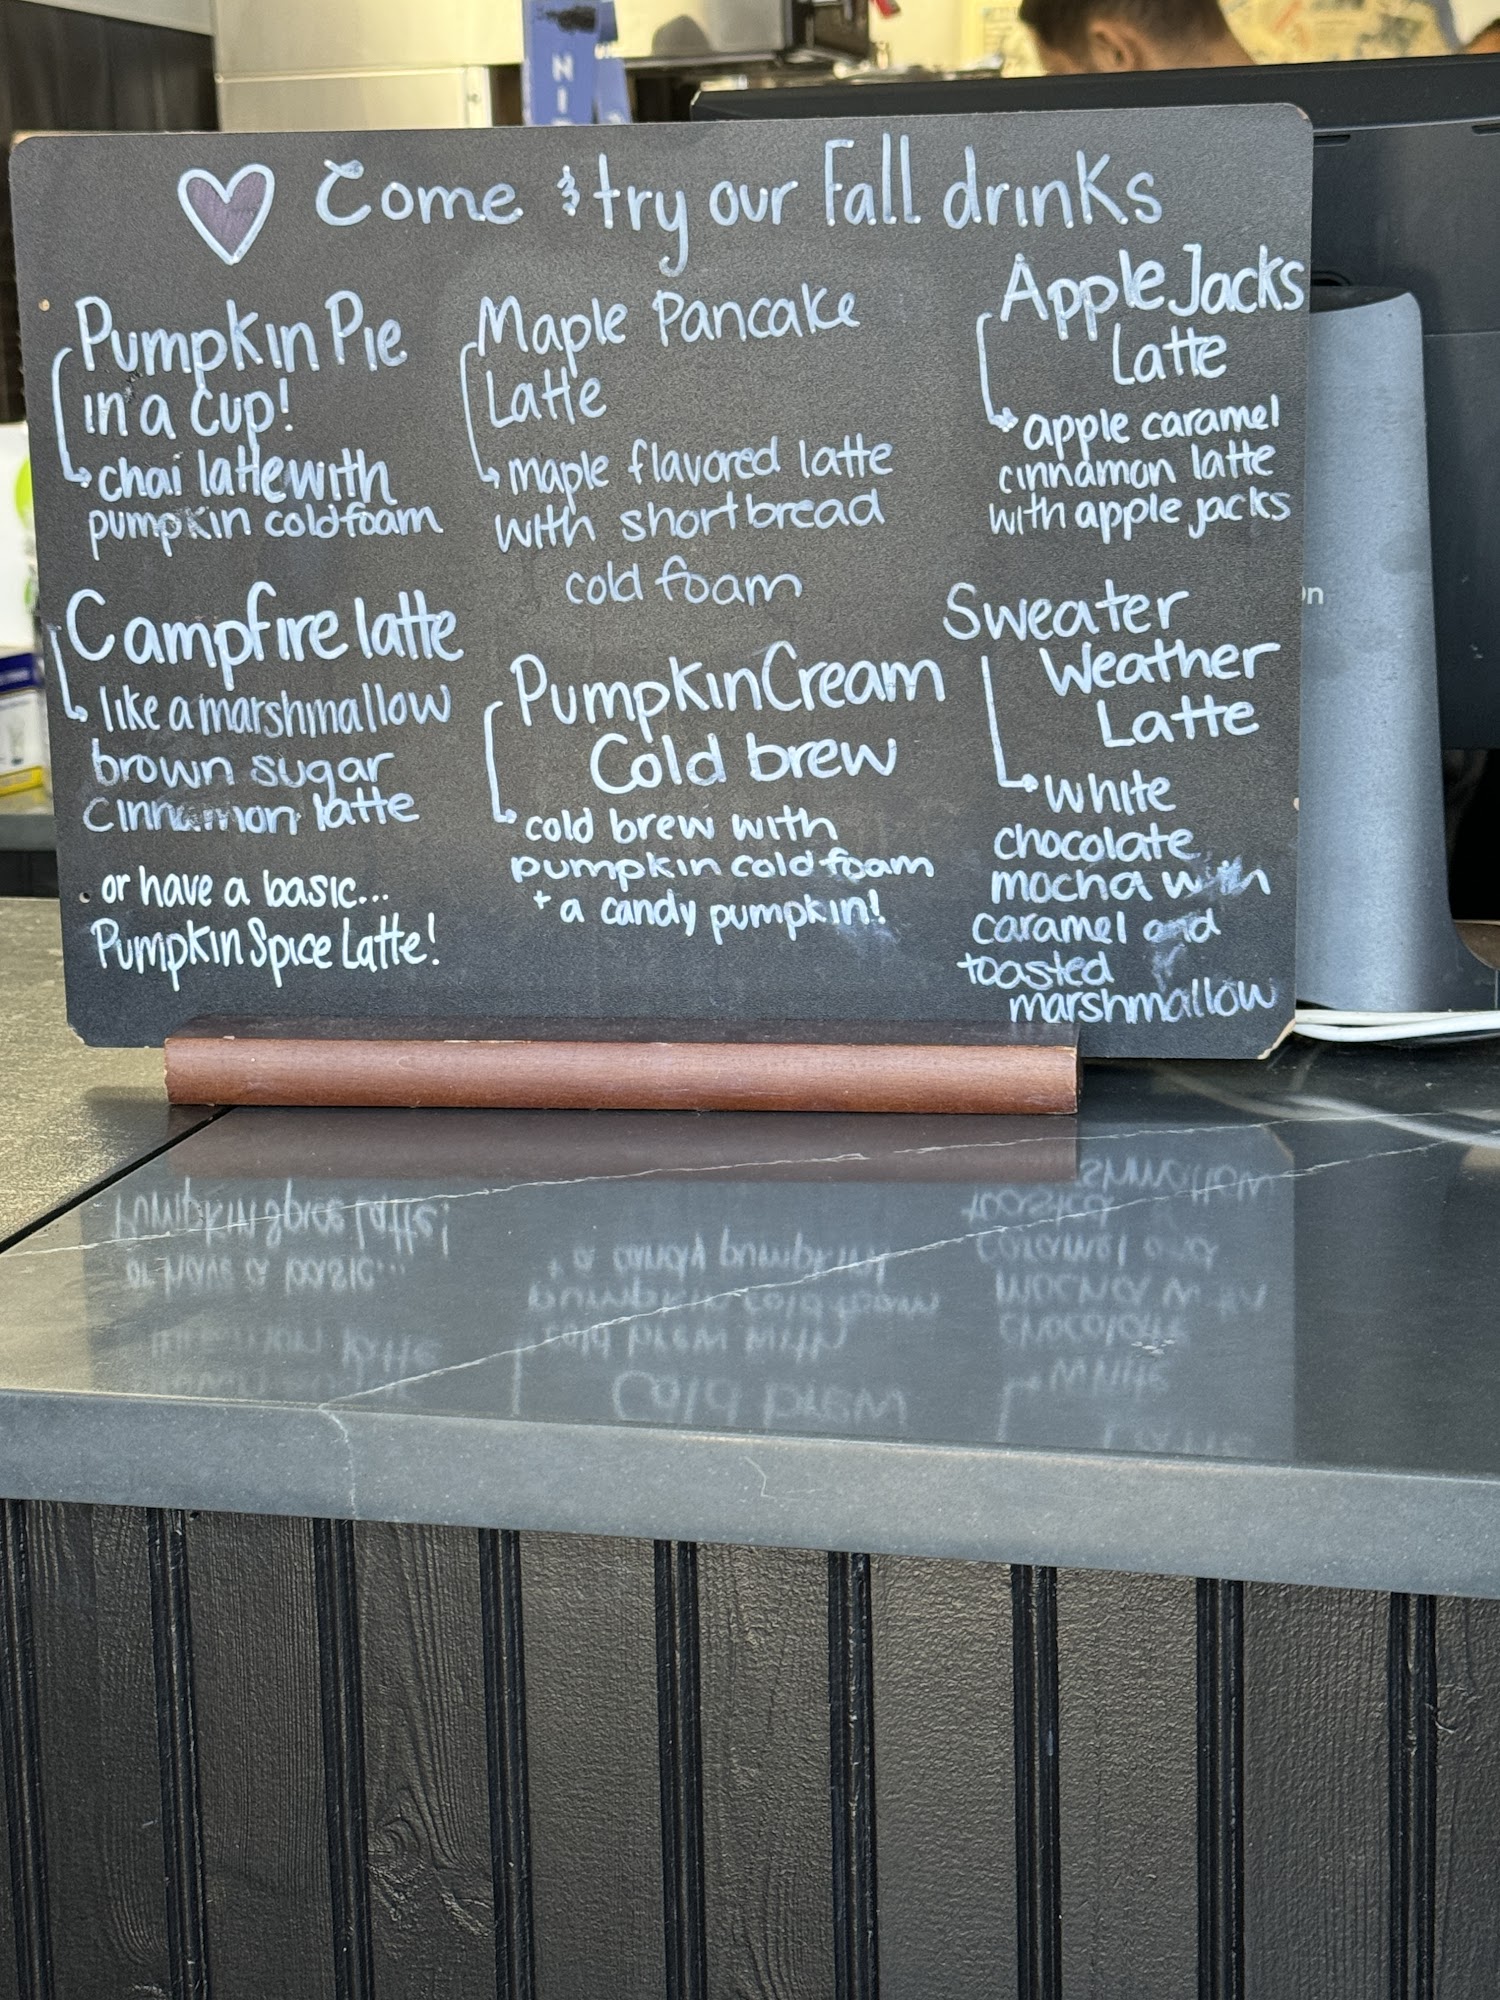 Come & try our Fall drinks
Pumpkin Pie
in a cup!
chai latte with
pumpkin cold foam
Campfire latte
like a marshmallow
brown sugar
cinnamon latte
or have a basic...
Pumpkin Spice Latte!
Maple Pancake
Latte
maple flavored latte
with shortbread
cold foam
Pumpkin Cream
Cold brew
cold brew with
pumpkin cold foam
+ a candy pumpkin!
Apple Jacks
Latte
apple caramel
cinnamon latte
with apple jacks
Sweater
Weather
Latte
white
chocolate
mocha with
caramel and
toasted
marshmallow